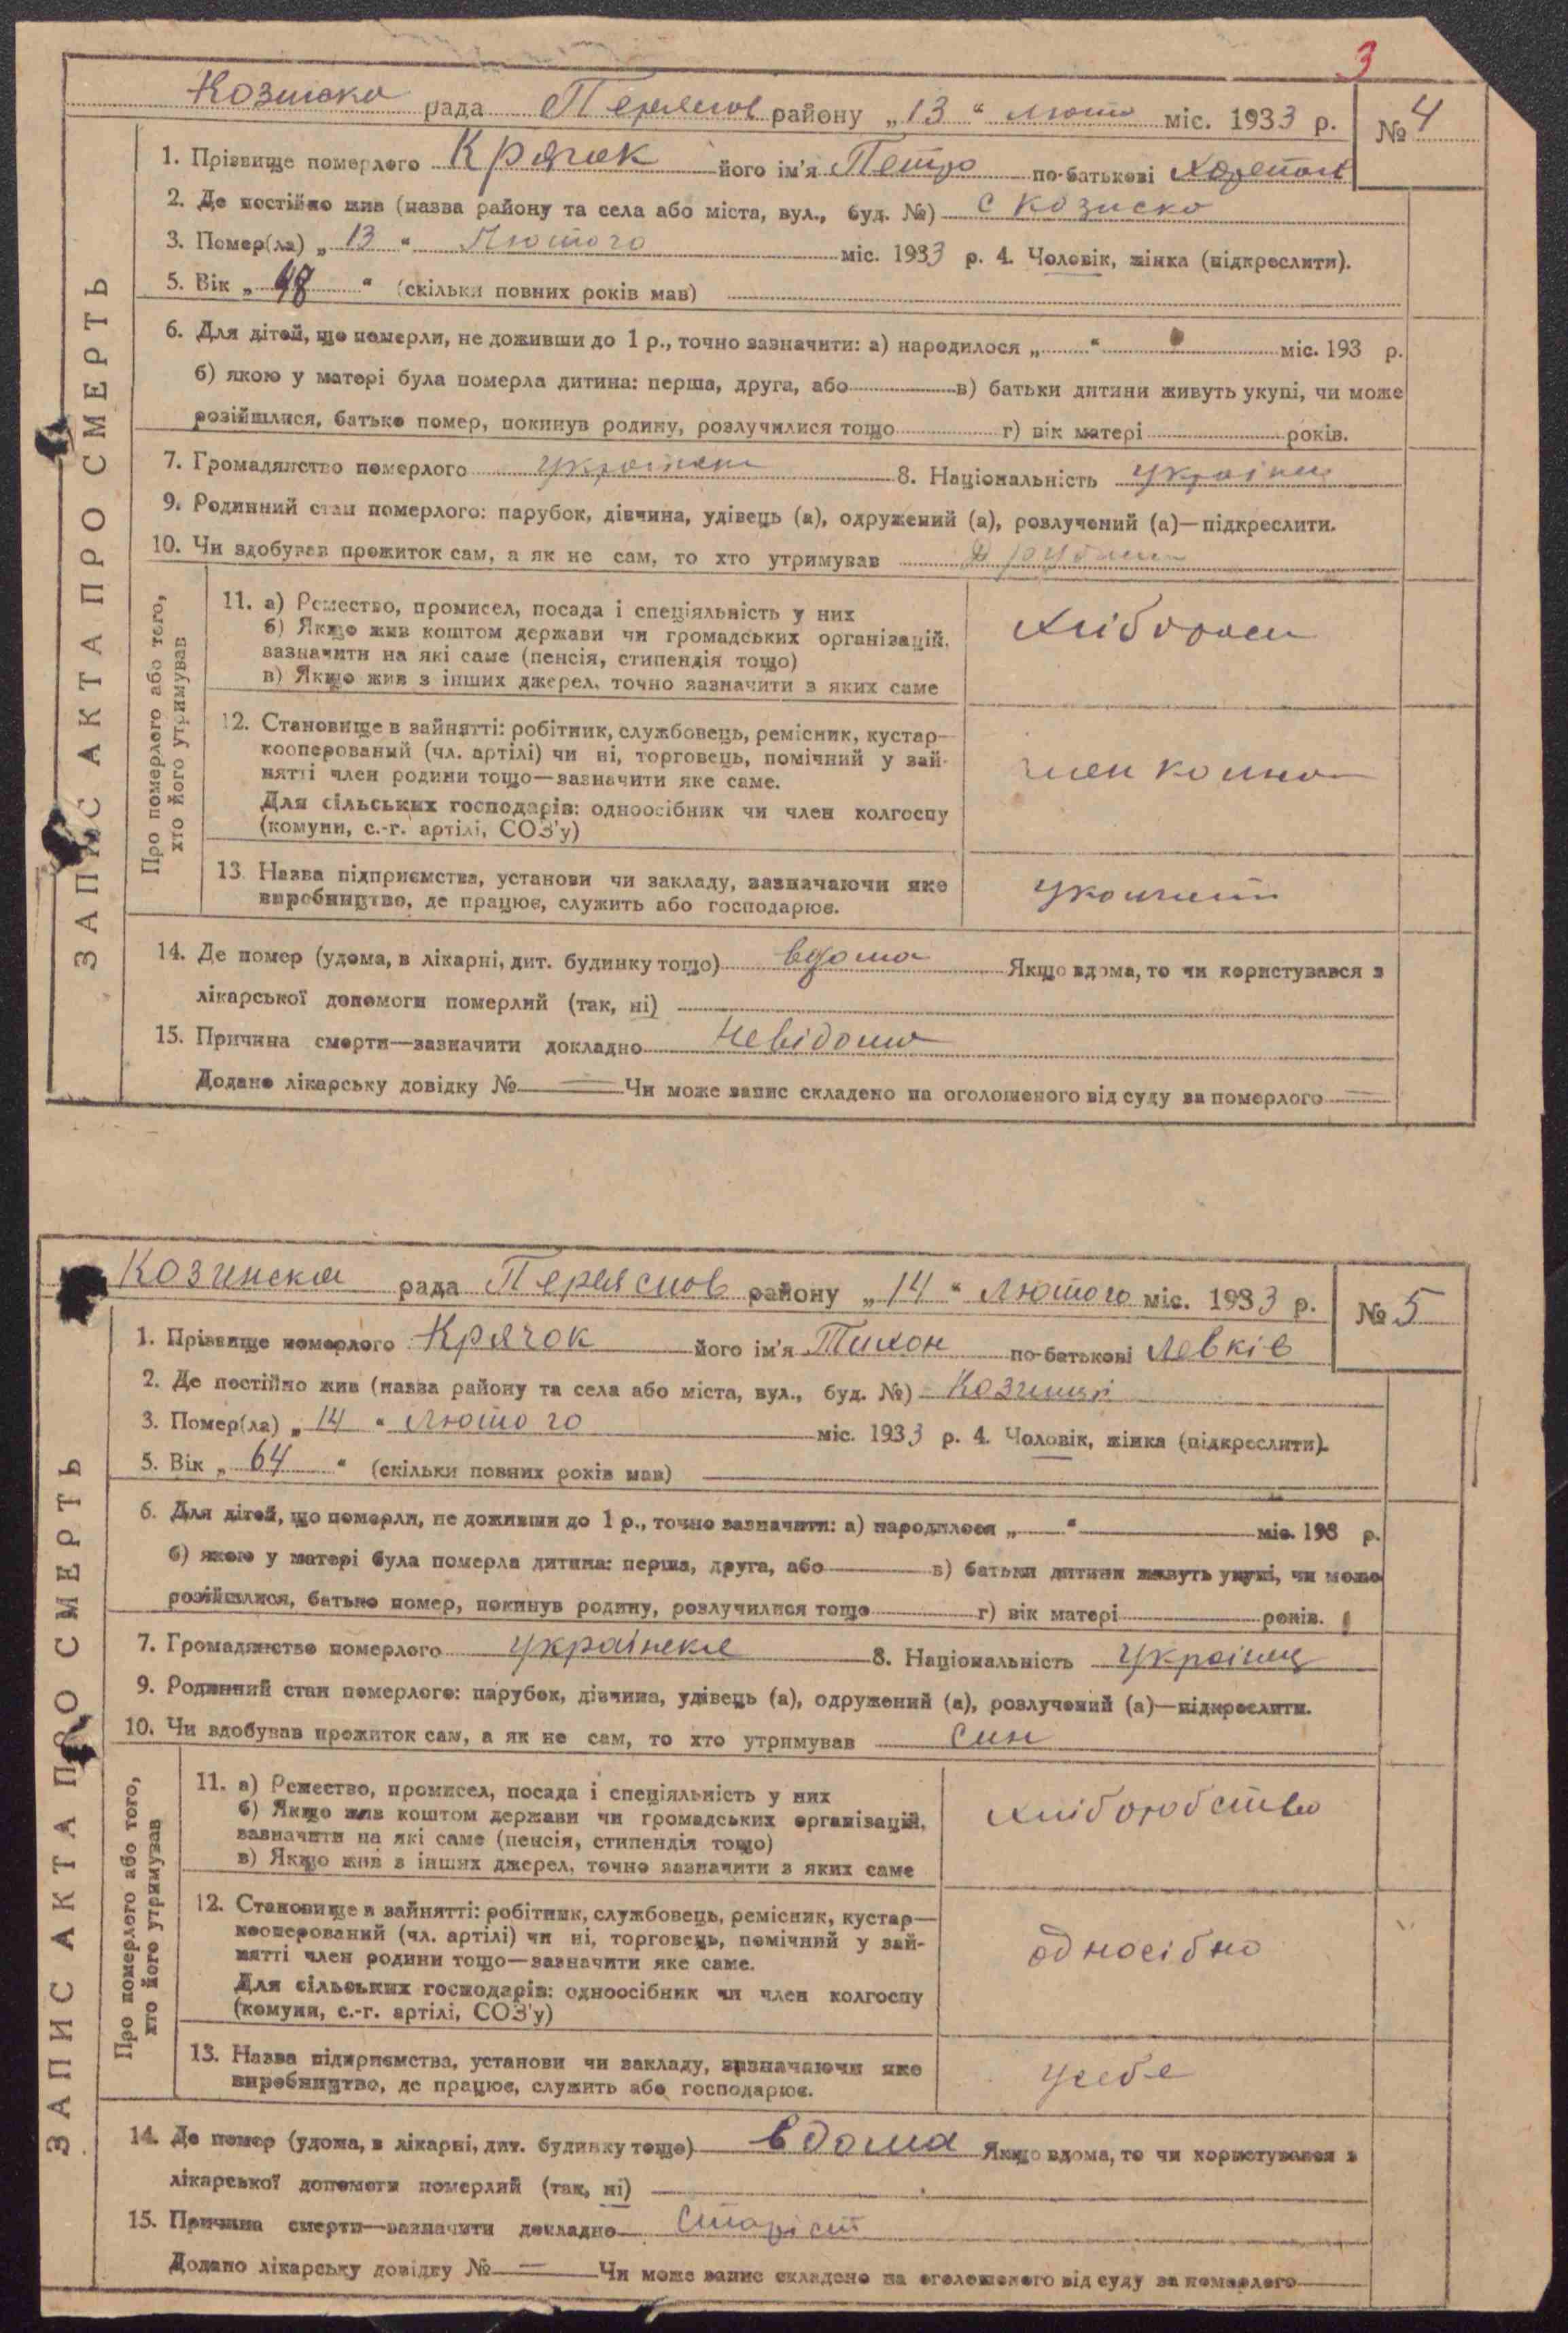 3
Козинска рада Переяслов району „13“ лютого міс. 1933 р. № 4
1. Прізвище померлого Крячок його ім'я Петро по-батькові
2. Де постійно жив (назва району та села або міста, вул., буд. №) с
3. Помер(ла) „13“ Лютого міс. 1933 р. 4. Чоловік, жінка (підкреслити).
5. Вік „48“ (скільки повних років мав)
6. Для дітей, що померли, не доживши до 1 р., точно зазначити: а) народилося „ “ міс. 193 р.
б) якою у матері була померла дитина: перша, друга, або в) батьки дитини живуть укупі, чи може
розійшлися, батько помер, покинув родину, розлучилися тощо г) вік матері років.
7. Громадянство померлого 8. Національність українец
9. Родинний стан померлого: парубок, дівчина, удівець (а), одружений (а), розлучений (а)—підкреслити.
10. Чи здобував прожиток сам, а як не сам, то хто утримував
ЗАПИС АКТА ПРО СМЕРТЬ
Про померлого або того, хто його утримував
11. а) Ремество, промисел, посада і спеціяльність у них
б) Якщо жив коштом держави чи громадських організацій,
зазначити на які саме (пенсія, стипендія тощо)
в) Якщо жив з інших джерел, точно зазначити з яких саме
12. Становище в зайнятті: робітник, службовець, ремісник, кустар—
кооперований (чл. артілі) чи ні, торговець, помічний у зай-
нятті член родини тощо—зазначити яке саме.
член
Для сільських господарів: одноосібник чи член колгоспу
(комуни, с.-г. артілі, СОЗ'у)
13. Назва підприємства, установи чи закладу, зазначаючи яке
виробництво, де працює, служить або господарює.
14. Де помер (удома, в лікарні, дит. будинку тощо) вдома Якщо вдома, то чи користувався з
лікарської допомоги померлий (так, ні)
15. Причина смерти—зазначити докладно Невідома
Додано лікарську довідку № — Чи може запис складено на оголошеного від суду за померлого —
Козинска рада Переяслов району „14“ Лютого міс. 1933 р. № 5
1. Прізвище померлого Крячок його ім'я Тихон по-батькові Левків
2. Де постійно жив (назва району та села або міста, вул., буд. №) Козинці
3. Помер(ла) „14“ Лютого міс. 1933 р. 4. Чоловік, жінка (підкреслити).
5. Вік „64“ (скільки повних років мав)
6. Для дітей, що померли, не доживши до 1 р., точно зазначити: а) народилося „ “ міс. 193 р.
б) якою у матері була померла дитина: перша, друга, або в) батьки дитини живуть укупі, чи може
розійшлися, батько помер, покинув родину, розлучилися тощо г) вік матері років.
7. Громадянство померлого українске 8. Національність Українец
9. Родинний стан померлого: парубок, дівчина, удівець (а), одружений (а), розлучений (а)—підкреслити.
10. Чи здобував прожиток сам, а як не сам, то хто утримував син
ЗАПИС АКТА ПРО СМЕРТЬ
Про померлого або того, хто його утримував
11. а) Ремество, промисел, посада і спеціяльність у них
б) Якщо жив коштом держави чи громадських організацій,
зазначити на які саме (пенсія, стипендія тощо)
в) Якщо жив з інших джерел, точно зазначити з яких саме
хліборобство
12. Становище в зайнятті: робітник, службовець, ремісник, кустар—
кооперований (чл. артілі) чи ні, торговець, помічний у зай-
нятті член родини тощо—зазначити яке саме.
односібно
Для сільських господарів: одноосібник чи член колгоспу
(комуни, с.-г. артілі, СОЗ'у)
13. Назва підприємства, установи чи закладу, зазначаючи яке
виробництво, де працює, служить або господарює.
усебе
14. Де помер (удома, в лікарні, дит. будинку тощо) вдома Якщо вдома, то чи користувався з
лікарської допомоги померлий (так, ні)
15. Причина смерти—зазначити докладно Старіст
Додано лікарську довідку № — Чи може запис складено на оголошеного від суду за померлого